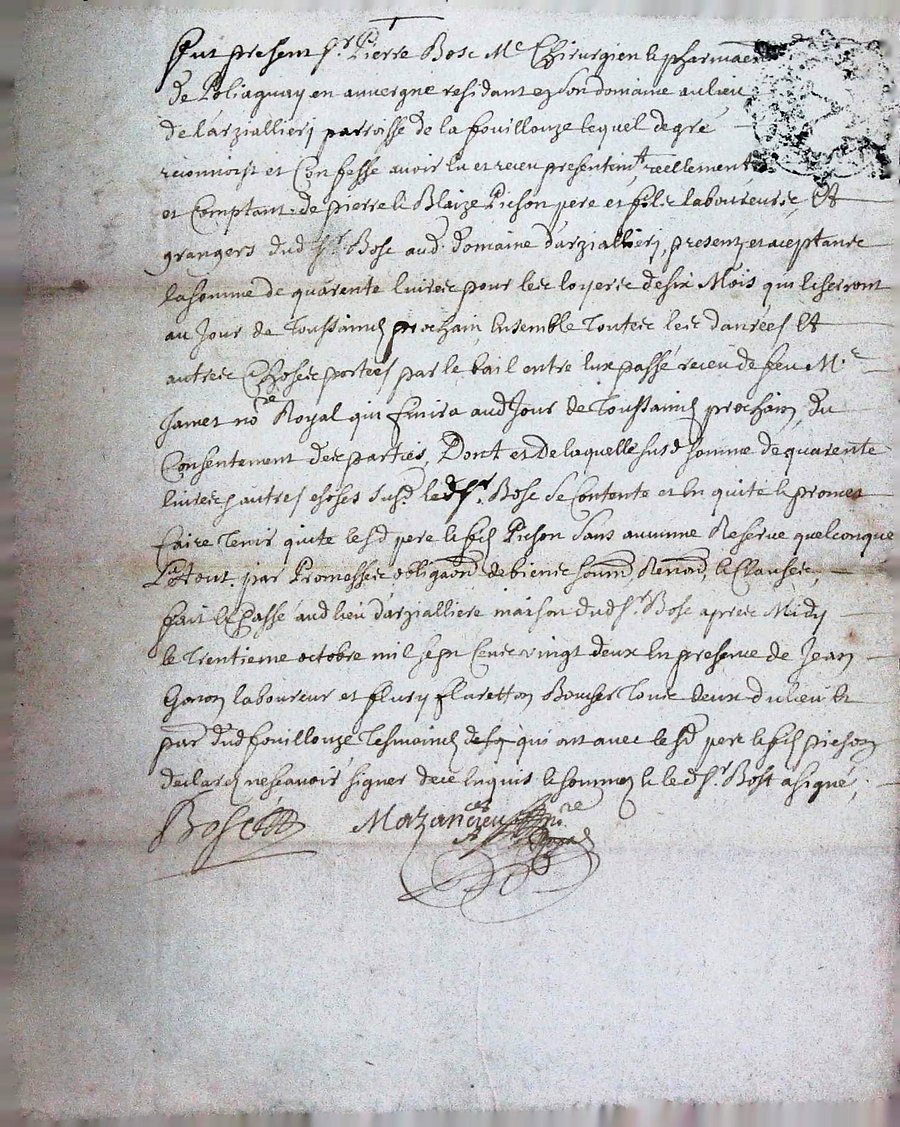 Fut present Sr Pierre Bosc Me Chirurgien & pharmacien
de Poliaguay en auvergne residant en son domaine au lieu
de Larziallierj parroisse de la fouillouze lequel de gré
reconnoist et Confesse avoir hu et receu presentemt reellement
et Comptant de pierre & Blaize Pichon pere et filz laboureurs, Et
grangers dud Sr Bosc aud domaine d'arziallierj, presentz et aceptantz
la somme de quarente livres pour les loyers de six Mois qui escherront
au Jour de Toussainct prochain Ensemble Toutes les danrées Et
autres Choses portées par le bail entre Eux passé receu de feu Me
Jamet nore Royal qui finira aud Jour de Toussainct prochain du
Consentement des parties, Dont et de laquelle susd somme de quarente
livres & autres choses susd. led Sr. Bosc se Contente et En quite & promet
faire Tenir quite lesd pere & fils Pichon Sans aucunne Reserve quelconque
Le tout par Promesses obligaons de biens soumons Renonons & Clauses,
fait & Passé aud lieu d'arzialliere maison dud Sr Bosc apres Midy
le Trentieme octobre mil sept Cents vingt deux En presence de Jean
Gonon laboureur et flury flaretton Boucher Tous deux du lieu et
parre dud fouillouze Tesmoins qui ont avec lesd pere & fils pichon
declaré ne scavoir signer de ce Enquis & sommez & led Sr Bost a signé,
Bosc Mazancieux nore